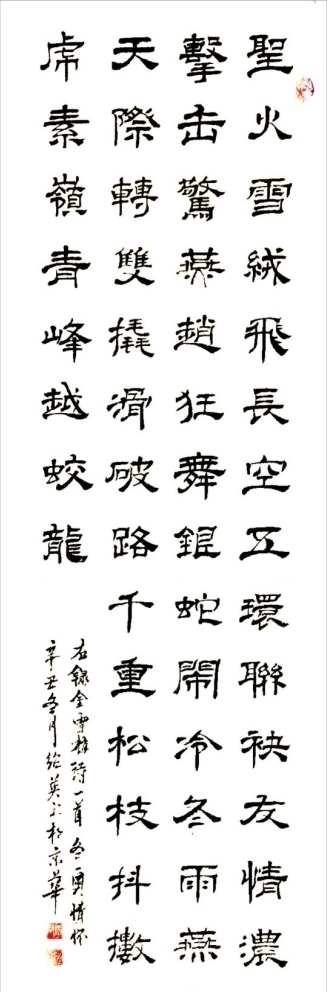 聖火雪絨飛長空五環聯袂友情濃
擊缶驚燕趙狂舞銀蛇鬧冷冬雨燕
天際轉雙撬滑破路千重松枝抖擻
虎素嶺青峰越蛟龍
右錄金雪梅詩一首冬奧情怀
辛丑冬月 英 於京華